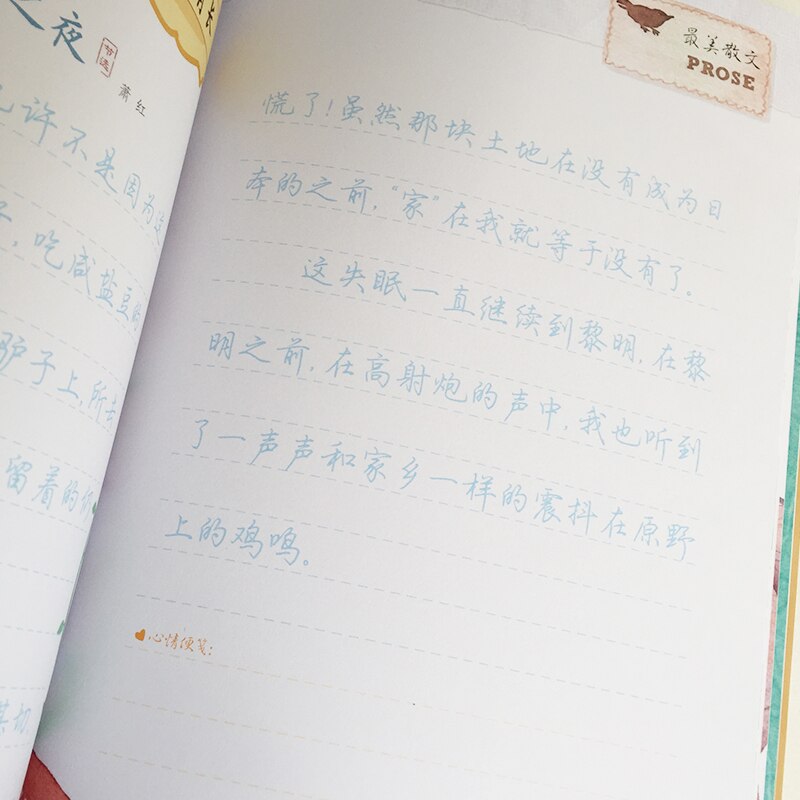 之夜
节选
萧红
也许不是因为这
吃咸盐豆的
驴子上,所去
留着的你
其切
最美散文
PROSE
慌了!虽然那块土地在没有成为日
本的之前,“家”在我就等于没有了。
这失眠一直继续到黎明,在黎
明之前,在高射炮的声中,我也听到
了一声声和家乡一样的震抖在原野
上的鸡鸣。
心情便笺: